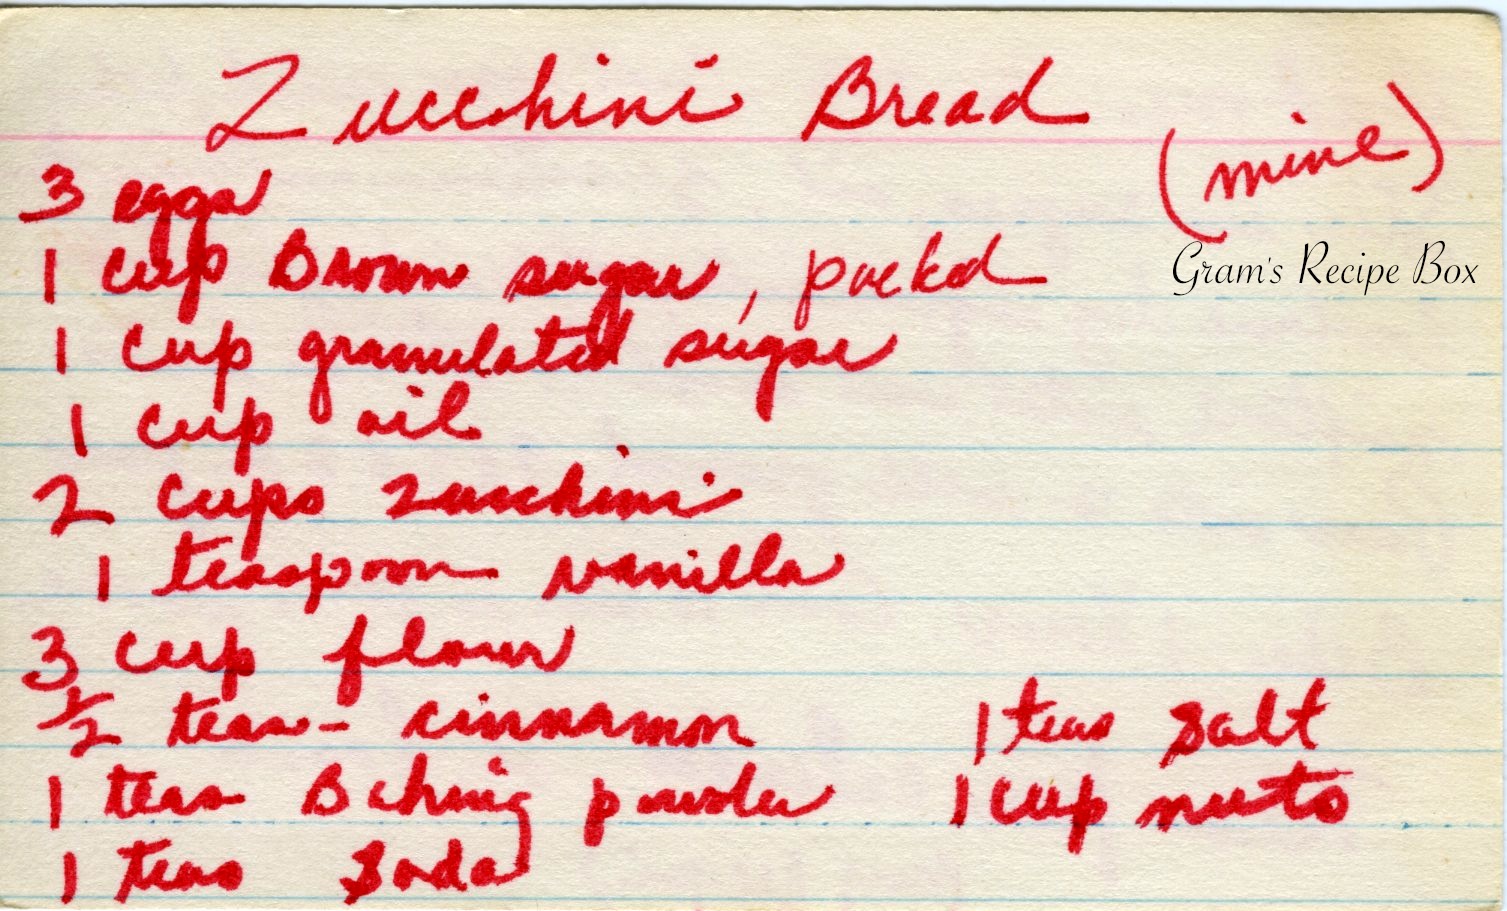 Zucchini Bread
(mine)
3 eggs
Gram's Recipe Box
1 cup Brown sugar, packed
1 cup granulated sugar
1 cup oil
2 cups zucchini
1 teaspoon vanilla
3 cup flour
1/2 teas - cinnamon
1 teas salt
1 teas Baking powder
1 cup nuts
1 teas Soda